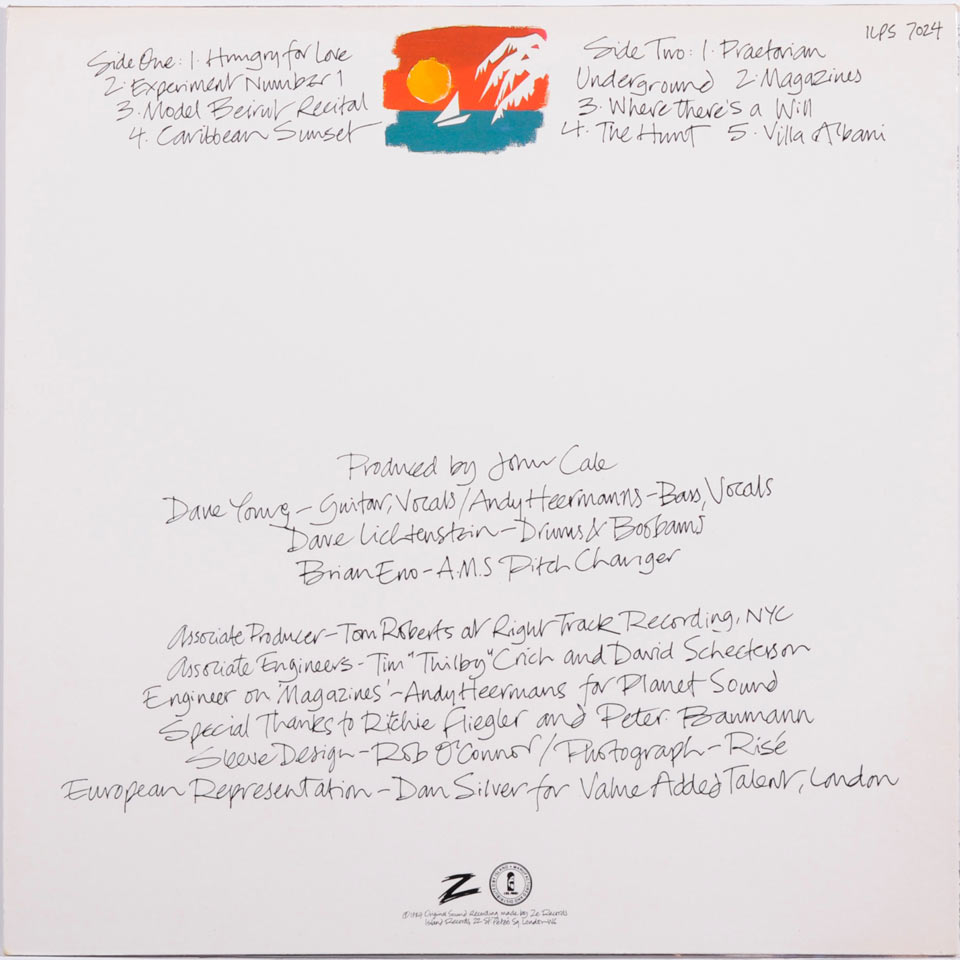 ILPS 7024
Side One: 1. Hungry for Love
2. Experiment Number 1
3. Model Beirut Recital
4. Caribbean Sunset
Side Two: 1. Praetorian
Underground 2. Magazines
3. Where there's a Will
4. The Hunt 5. Villa Albani
Produced by John Cale
Dave Young – Guitar, Vocals / Andy Heermanns – Bass, Vocals
Dave Lichtenstein – Drums & Boobams
Brian Eno – A.M.S Pitch Changer
Associate Producer – Tom Roberts at Right Track Recording, NYC
Associate Engineers – Tim "Thilby" Crich and David Schecterson
Engineer on 'Magazines' – Andy Heermans for Planet Sound
Special Thanks to Richie Fliegler and Peter Baumann
Sleeve Design – Rob O'Connor / Photograph – Risé
European Representation – Dan Silver for Value Added Talent, London
Z
℗ 1984 Original Sound Recording made by Ze Records
Island Records, 22 St Peters Sq, London W6